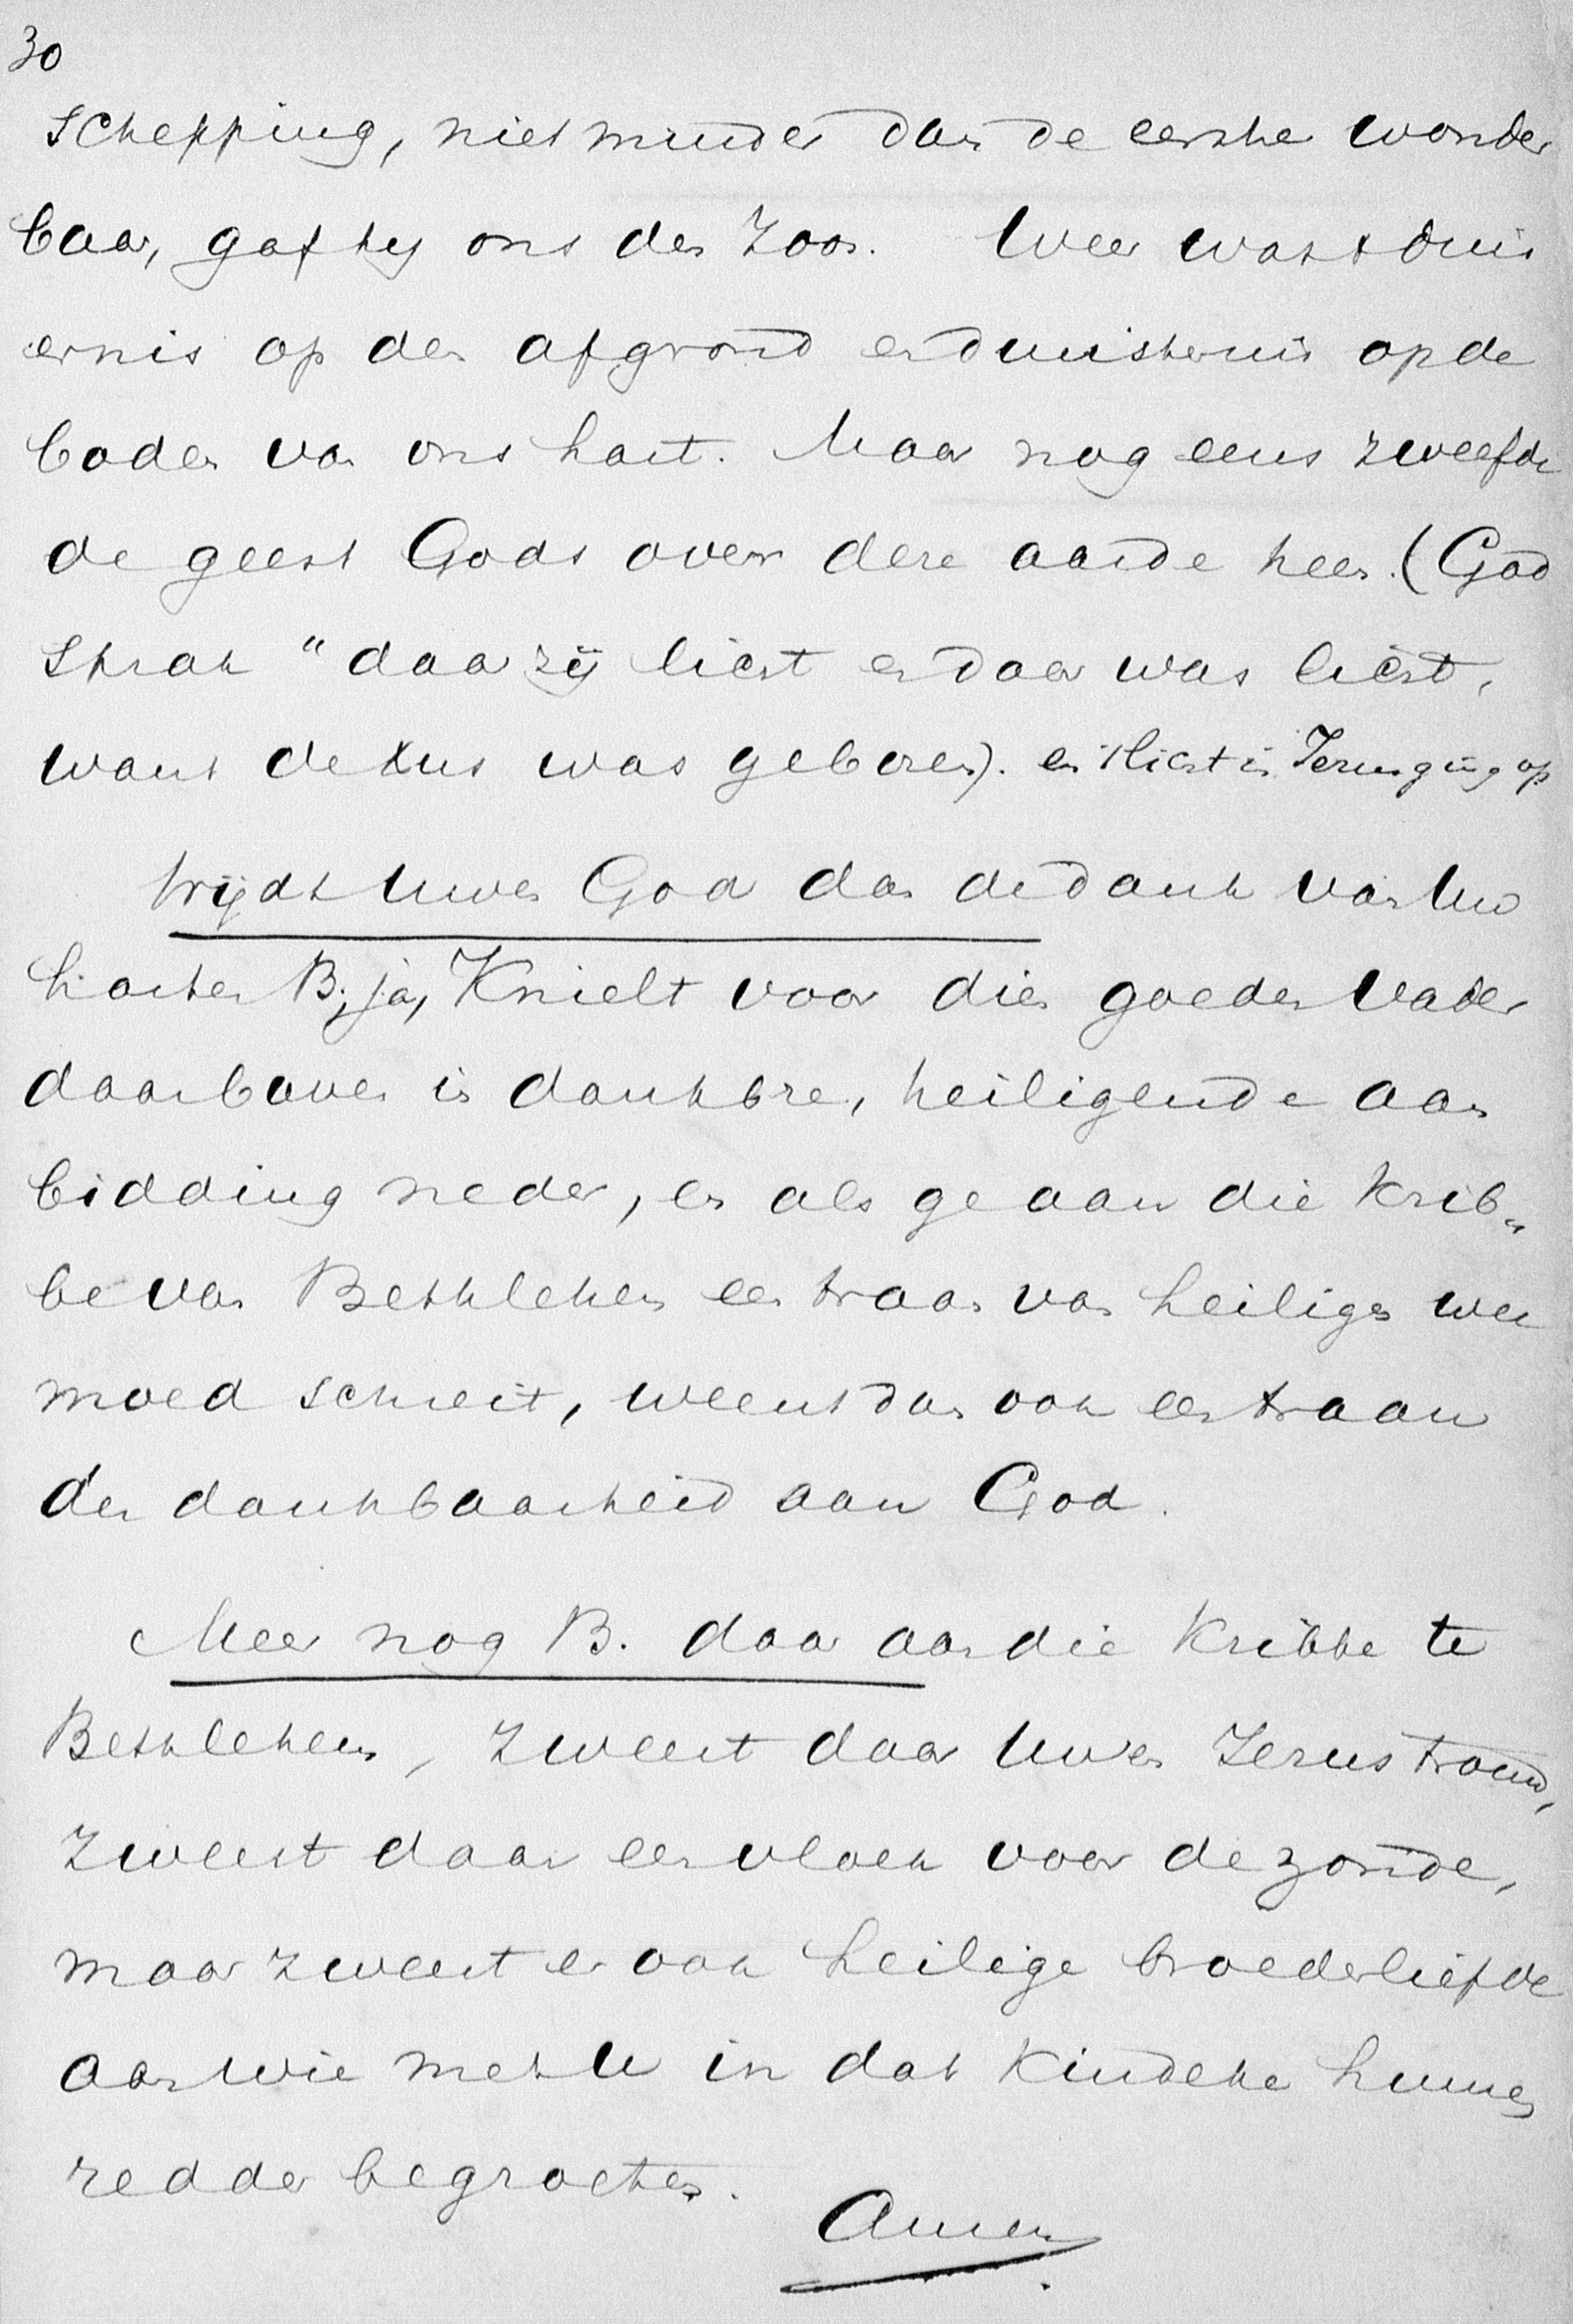 30
schepping, niet minder dan de eerste wonder
baar, gaf hij ons den Zoon. Weer was 't duis
ernis op den afgrond en duisternis op de
bodem van ons hart. Maar nog eens zweefde
de geest Gods over deze aarde heen. (God
sprak "daar zij licht en daar was licht,
want de Xus was geboren). en 't licht in Jezus ging op
Wijdt Uwen God dan de dank van Uw
harten B, ja, Knielt voor dien goeden Vader
daarboven in dankbre, heiligende aan
bidding neder, en als ge aan die krib„
be van Bethlehem een traan van heiligen wee
moed schreit, weent dan ook een traan
der dankbaarheid aan God.
Meer nog B. daar aan die Kribbe te
Bethlehem, zweert daar Uwen Jezus trouw,
zweert daar een vloek voor de zonde,
maar zweert er ook heilige broederliefde
aan wie met U in dat Kindeke hunnen
redder begroeten.
Amen.